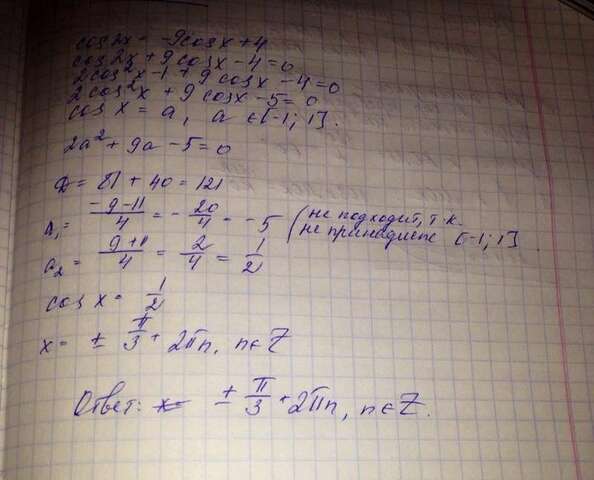 cos2x = -9cosx+4
cos2x + 9cosx - 4 = 0
2cos²x - 1 + 9cosx - 4 = 0
2cos²x + 9cosx - 5 = 0
cos x = a, a ∈ [-1; 1].
2a² + 9a - 5 = 0
D = 81 + 40 = 121
a₁ = (-9-11)/4 = -20/4 = -5 (не подходит, т.к.
не принадлеж [-1; 1]
a₂ = (-9+11)/4 = 2/4 = 1/2
cos x = 1/2
x = ± π/3 + 2πn, n∈Z
Ответ: ± π/3 + 2πn, n∈Z.